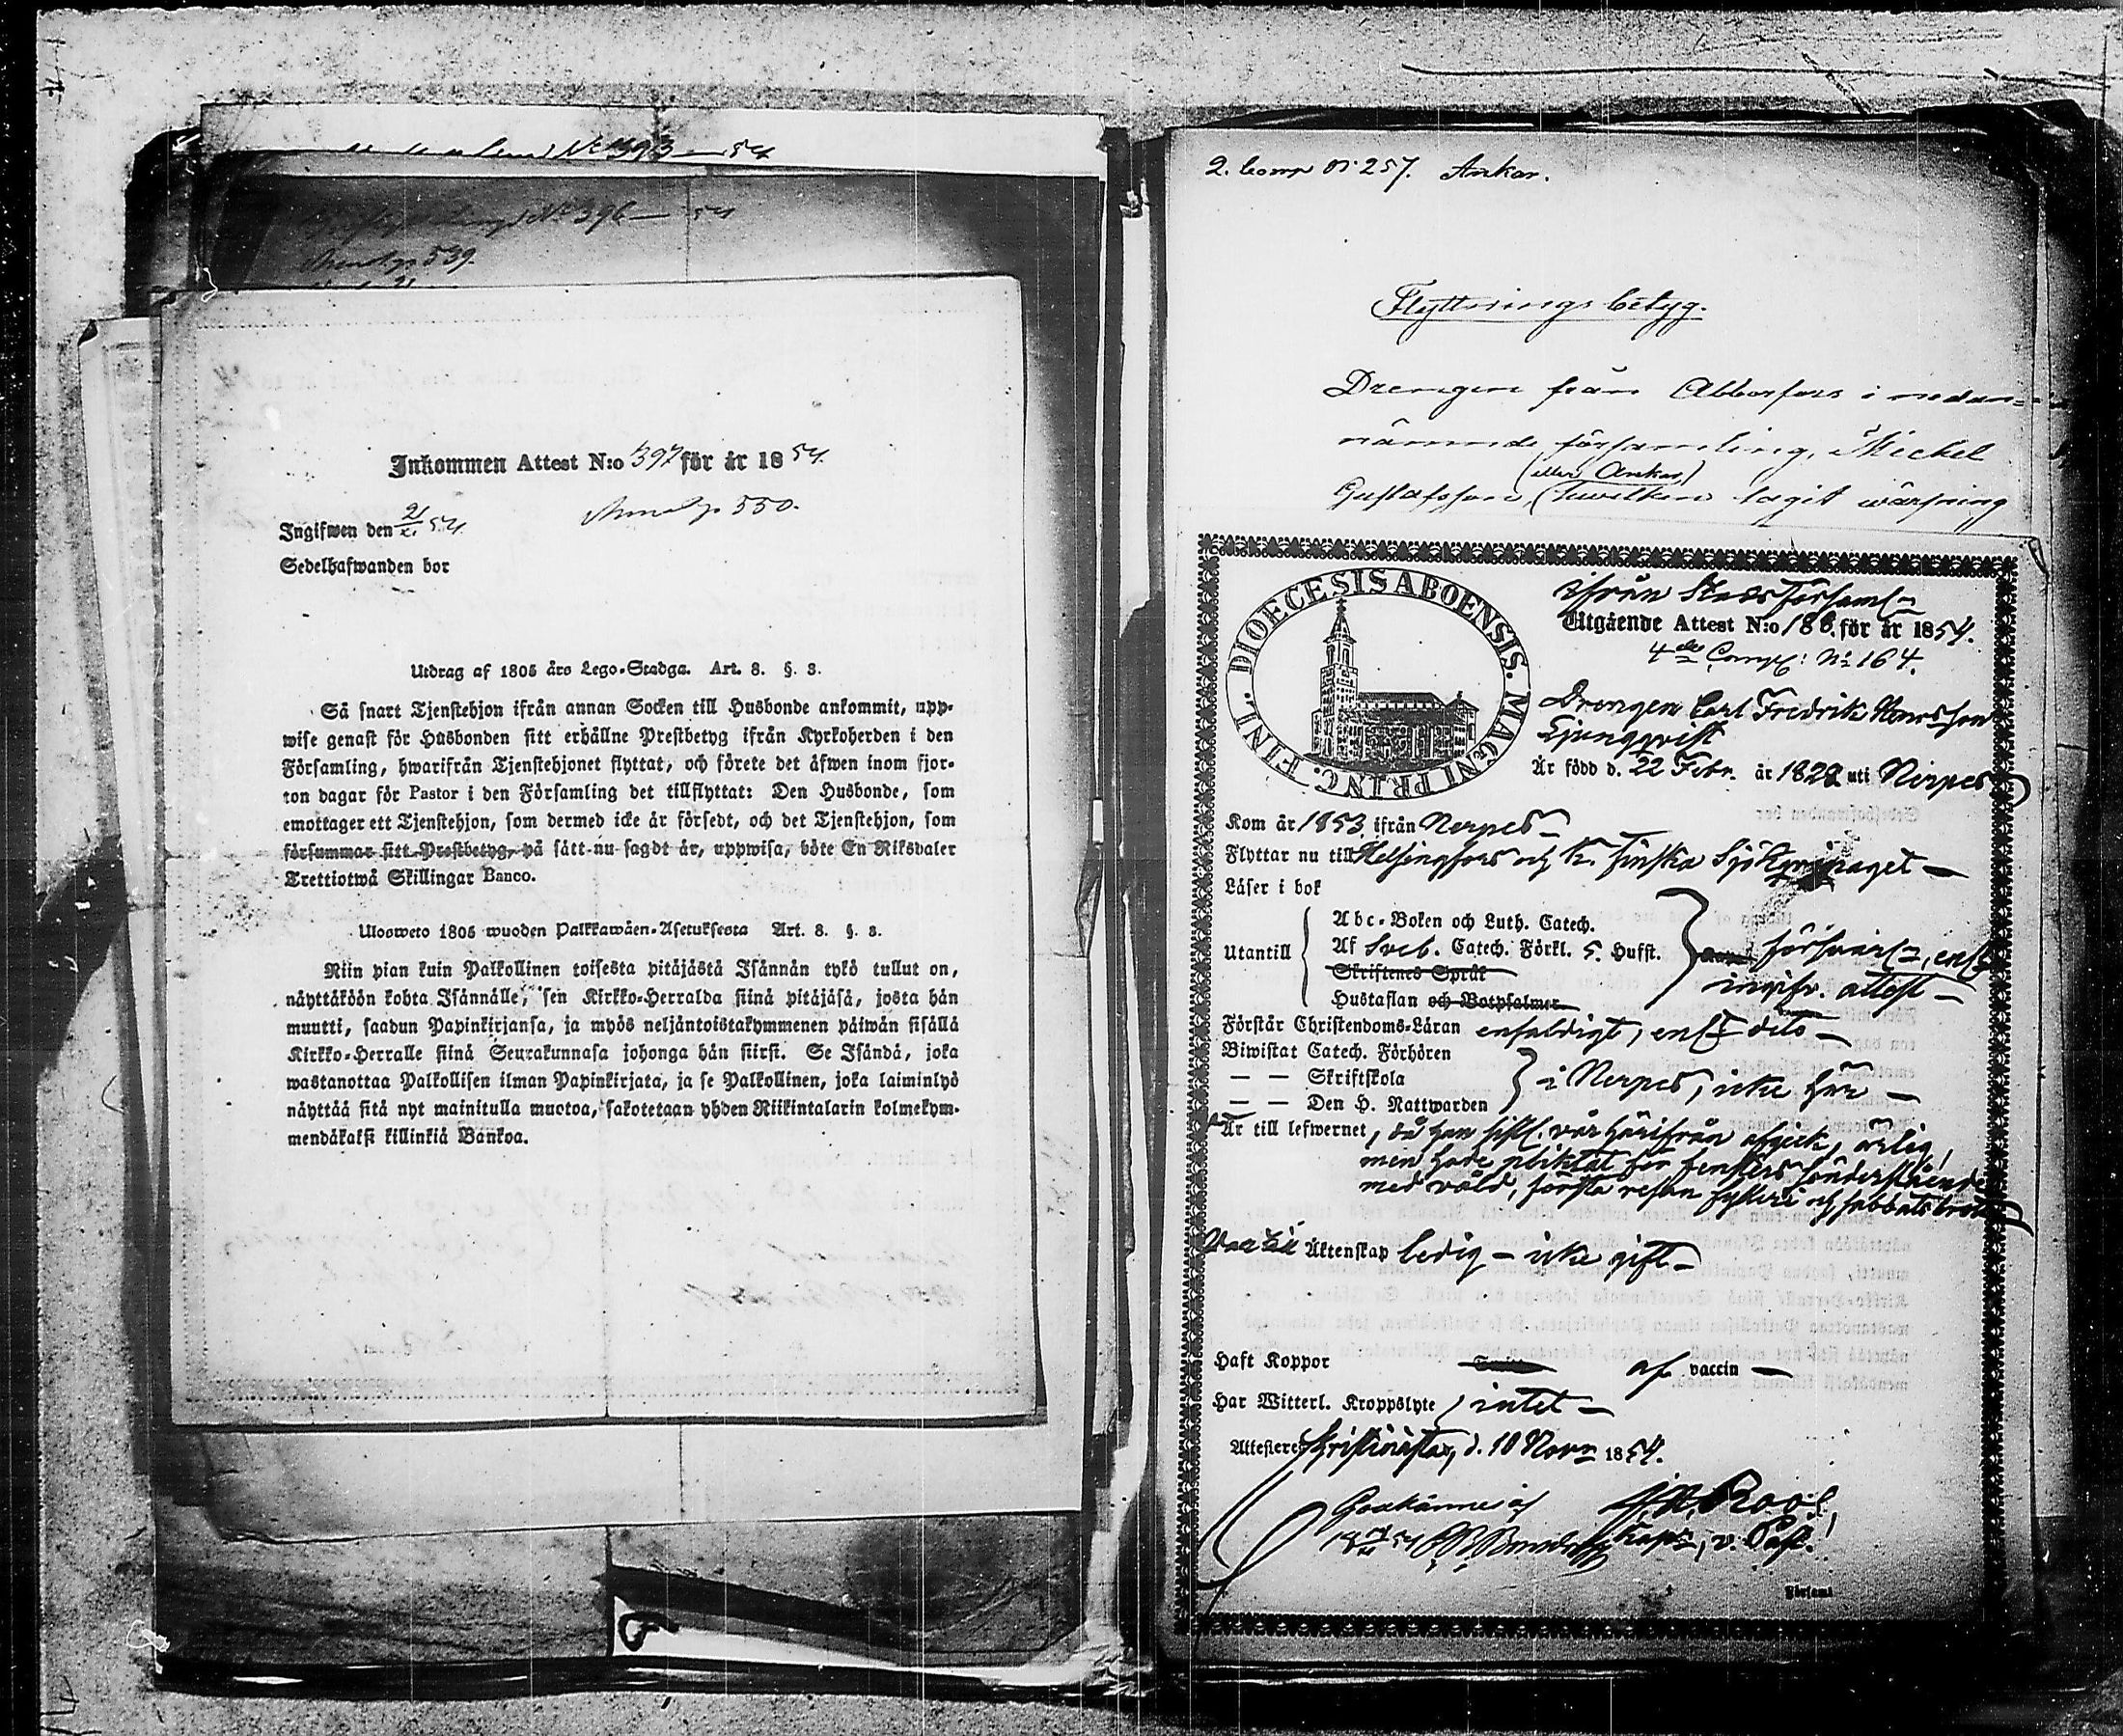 N:o 393 — 54
N:o 396 — 54
539.
Inkommen Attest N:o 397 för år 1854.
Ingifwen den 21/11 54.
550.
Sedelhafwanden bor
Utdrag af 1805 års Lego-Stadga. Art. 8. §. 3.
Så snart Tjenstehjon ifrån annan Socken till Husbonde ankommit, upp-
wise genast för Husbonden sitt erhållne Prestbetyg ifrån Kyrkoherden i den
Församling, hwarifrån Tjenstehjonet flyttat, och förete det äfwen inom fjor-
ton dagar för Pastor i den Församling det tillflyttat: Den Husbonde, som
emottager ett Tjenstehjon, som dermed icke är försedt, och det Tjenstehjon, som
försummar sitt Prestbetyg, på sätt nu sagdt är, uppwisa, böte En Riksdaler
Trettiotwå Skillingar Banco.
Ulosweto 1805 wuoden Palkkawäen-Asetuksesta Art. 8. §. 3.
Niin pian kuin Palkollinen toisesta pitäjästä Isännän tykö tullut on,
näyttäköön kohta Isännälle, sen Kirkko-Herralda siinä pitäjäsä, josta hän
muutti, saadun Papinkirjansa, ja myös neljäntoistakymmenen päiwän sisällä
Kirkko-Herralle siinä Seurakunnasa johonga hän siirsi. Se Isändä, joka
wastanottaa Palkollisen ilman Papinkirjata, ja se Palkollinen, joka laiminlyö
näyttää sitä nyt mainitulla muotoa, sakotetaan yhden Riikintalarin kolmekym-
mendäkaksi killinkiä Bankoa.
2. Comp N:257. Ankar.
Flyttningsbetyg.
Drengen från Abborfors i nedan-
nämnde församling, Michel
(eller Ankar)
Gustafsson, hwilken tagit wärfning
DIOECESIS ABOENSIS. MAGNI PRINC. FINL.
ifrån Stads Församl:n
Utgående Attest N:o 188. för år 1854.
4de Comp: N: 164.
Drengen Carl Fredrik Hansson
Ljungqvist
Är född d. 22 Febr. år 1828 uti Nerpes
Kom år 1853 ifrån Nerpes —
Flyttar nu till Helsingfors och K. finska Sjö Equipaget —
Läser i bok
Utantill
Abc-Boken och Luth. Catech.
Af Sveb. Catech. Förkl. 5. Hufst.
försvarl:n, enl:t
Skriftenes Språk
ingifv. attest —
Hustaflan och Botpsalmer
Förstår Christendoms-Läran enfaldigt, enl:t dito —
Biwistat Catech. Förhören
— — Skriftskola
i Nerpes, icke här —
— — Den H. Nattwarden
Är till lefwernet, då han sistl. vår härifrån afgick, ärlig,
men hade pliktat för fensters sönderslående
med våld, första resan fylleri och sabbatsbrott
Äktenskap ledig — icke gift —
Haft Koppor af vaccin —
Har Witterl. Kroppslyte intet —
Attesterer Kristinestad, d. 10 Nov:r 1854.
Godkännes af
Kapn, v. Past.
Församl